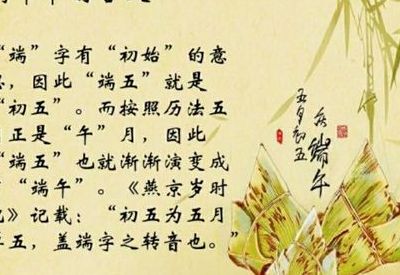 “端”字有“初始”的意
，因此“端五”就是
“初五”。而按照历法五
正是“午”月，因此
“端五”也就渐渐演变成
“端午”。《燕京岁时
》记载：“初五为五月
五，盖端字之转音也。”
端午
五月初五